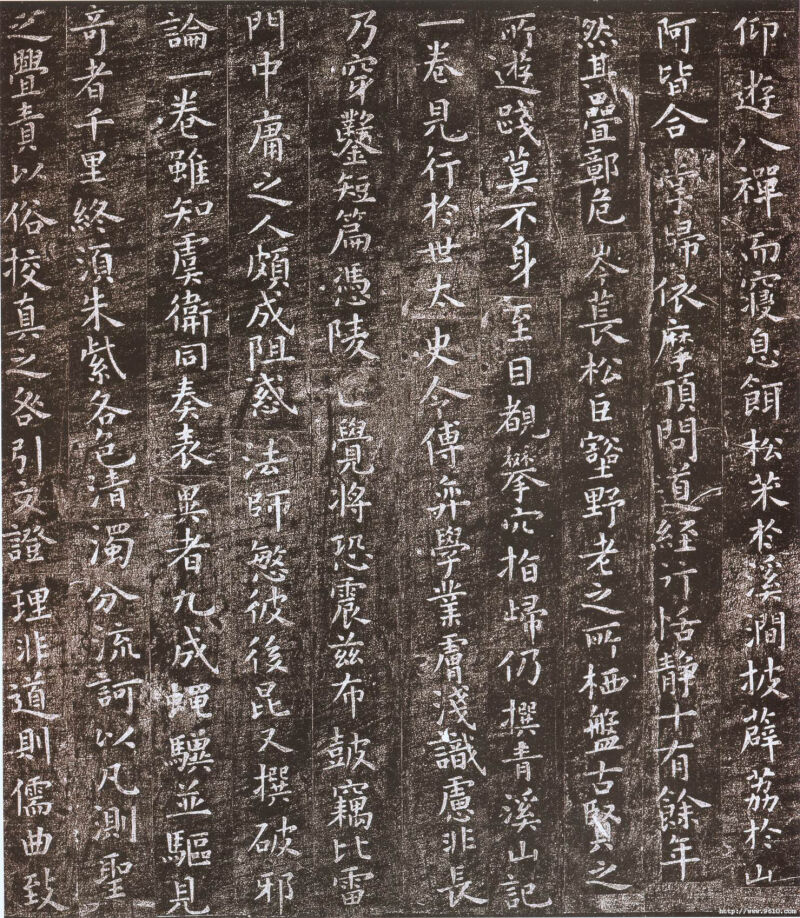 仰遊八禪而寢息餌松朮於溪澗披薜荔於山
阿皆合掌歸依摩頂問道經行恬靜十有餘年
然其疊鄣危岑萇松巨壑野老之所栖盤古賢之
所遊踐莫不身至目覩攀穴指歸仍撰青溪山記
一卷見行於世太史令傅弈學業膚淺識慮非長
乃穿鑿短篇憑陵正覺將恐震茲布皷竊比雷
門中庸之人頗成阻惑法師慜彼後昆又撰破邪
論一卷雖知虞衛同奏表異者九成蝇驥並驅見
奇者千里終須朱紫各色清濁分流訶以凡測聖
之舋責以俗校真之咎引文證理非道則儒曲致
http://www.9610.com